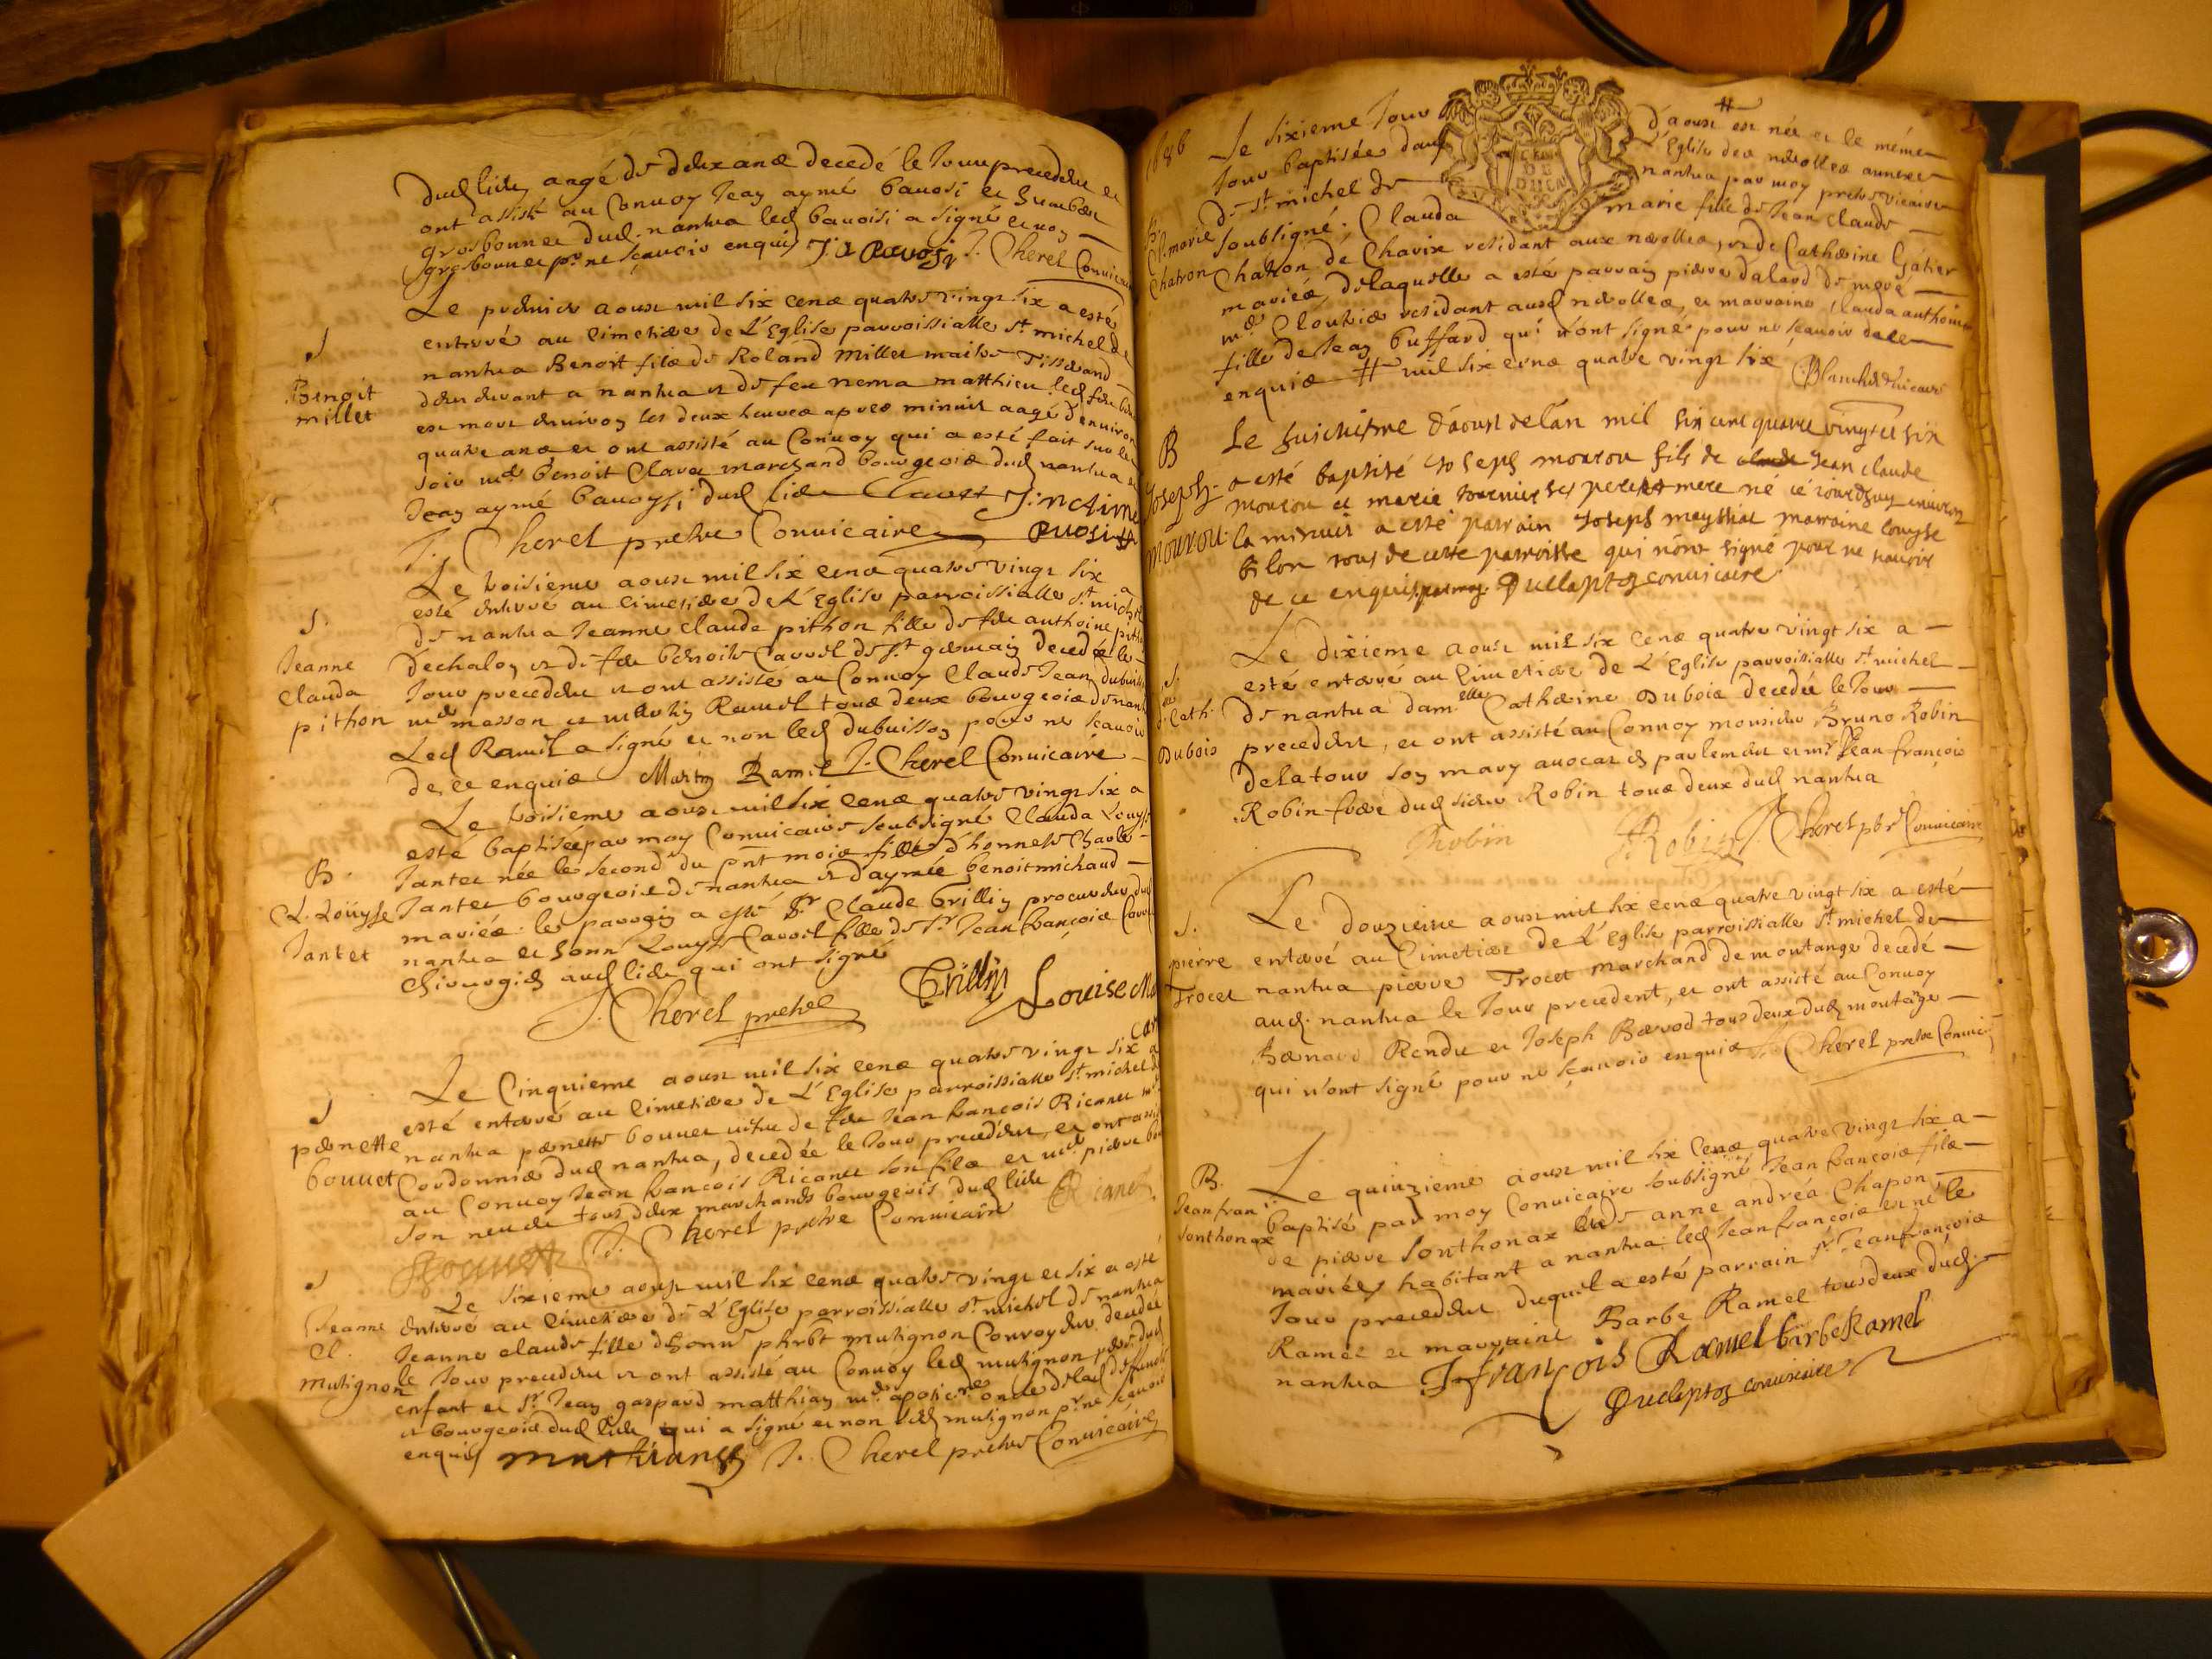 dud lieu aagé de deux ans decedé le Jour precedent et
ont assisté au Convoy Jean aymé bavosi et humbert
grosbonnet dud. nantua led bavoisi a signé et non
grosbonnet pr. ne sçavoir enquis J. Cherel Convicaire
Le premier aoust mil six cens quatre vingt six a esté
enterré au cimetiere de L'Eglise parroissialle st. michel de
nantua Benoit fils de Roland Millet maitre Tisserand
demeurant a nantua et de feu nema matthieu led feu benoit
est mort environ les deux heures apres minuit aagé d'environ
quatre ans et ont assisté au Convoy qui a esté fait sur le
soir md. benoit Clavet marchand bourgeois dud nantua et
Jean aymé bavoysi dud lieu Clavet
J. Cherel prestre Convicaire
S
Benoit
millet
Le troisieme aoust mil six cens quatre vingt six a
esté enterré au cimetiere de L'Eglise parroissialle st. michel
de nantua Jeanne claude pithon fille de feu anthoine pithon
de chalon et de feue benoite Cavorel de st. germain decedée le
Jour precedent et ont assisté au Convoy Claude Jean dubuisson
md. masson et martin Ramel tous deux bourgeois de nantua
Led Ramel a signé et non led dubuisson pour ne scavoir
de ce enquis Martin Ramel J. Cherel Convicaire
S.
Jeanne
Clauda
pithon
Le troisieme aoust mil six cens quatre vingt six a
esté baptisée par moy Convicaire soubsigné Clauda Louyse
Jantet née le second du pnt mois fille d'honneste Charle
Jantet bourgeois de nantua et d'aymée benoit michaud
mariés: le parrain a esté Sr. Claude Trillin procureur dud
nantua et honn. Louyse Cavorel fille de Sr. Jean françois Cavorel
Chirurgien aud lieu qui ont signé
J. Cherel prestre Trillin Louise
B.
Cl. Louysse
Jantet
Le Cinquieme aoust mil six cens quatre vingt six a
esté enterré au cimetiere de L'Eglise parroissialle st. michel de
nantua pernette bouvet vefve de feu Jean francois Ricanet md.
Cordonnier dud nantua, decedée le Jour precedent, et ont assisté
au Convoy Jean francois Ricanet son fils et md. pierre bouvet
son neveu tous deux marchands bourgeois dud lieu Ricanet
Bouvet J. Cherel prestre Convicaire
S
pernette
bouvet
Le sixieme aoust mil six cens quatre vingt et six a esté
enterré au cimetiere de L'Eglise parroissialle st. michel de nantua
Jeanne claude fille d'honn. phibt mutignon Conroyeur decedée
le Jour precedent et ont assisté au Convoy led mutignon pere dud
enfant et Sr. Jean gaspard matthian md. apoticre. oncle de lad deffunte
et bourgeois dud lieu qui a signé et non led mutignon pr. ne sçavoir
enquis matthian J. Cherel prestre Convicaire
S
Jeanne
Cl.
Mutignon
1686
Le sixieme Jour d'aoust est née et le méme
Jour baptisée dans L'Eglise des nérolles annexe
de st. michel de nantua par moy prestre vicaire
soubsigné; Clauda marie fille de Jean Claude
Chatron de Chavix residant aux nérolles, et de Catherine Gatier
mariés, de laquelle a esté parrain pierre dalard de
md. Cloutier residant aud nerolles, et marraine Clauda anthoine
fille de Jean buffard qui n'ont signé pour ne scavoir de ce
enquis # mil six cens quatre vingt six Blanchet Vicaire
B.
Cl. marie
Chatron
Le huichisme d'aoust de lan mil six cent quatre vingt et six
a esté baptisé Joseph mourou fils de Jean claude
mourou et marie tournier ses pere et mere né ce iourdhuy environ
la minuit a esté parrain Joseph marraine louyse
tous de cette parroisse qui nont signé pour ne scavoir
de ce enquis par moy convicaire
B
Joseph
mourou
Le dixieme aoust mil six cens quatre vingt six a
esté enterré au Cimetiere de L'Eglise parroissialle st. michel
de nantua damelle Catherine Dubois decedée le Jour
precedent, et ont assisté au Convoy monsieur Bruno Robin
delatour son mary avocat en parlement et mr. Jean françois
Robin frere dud sieur Robin tous deux dud nantua
Robin Robin J. Cherel pbr. Convicaire
S.
Cath.
Dubois
Le douzieme aoust mil six cens quatre vingt six a esté
enterré au Cimetiere de L'Eglise parroissialle st. michel de
nantua pierre Trocet marchand de montange decedé
aud. nantua le Jour precedent, et ont assisté au Convoy
Bernard Rendu et Joseph Berrod tous deux dud montange
qui n'ont signé pour ne sçavoir enquis J. Cherel prestre Convic.
S.
pierre
Trocet
Le quinzieme aoust mil six Cens quatre vingt six a
baptisé par moy Convicaire soubsigné Jean françois fils
de pierre Sonthonax et d'anne andréa Chapon
mariés habitant a nantua led Jean françois est né le
Jour precedent duquel a esté parrain Sr. Jean françois
Ramel et marraine Barbe Ramel tous deux dud.
nantua J francois Ramel barbe Ramel
convicaire
B.
Jean fran
Sonthonax